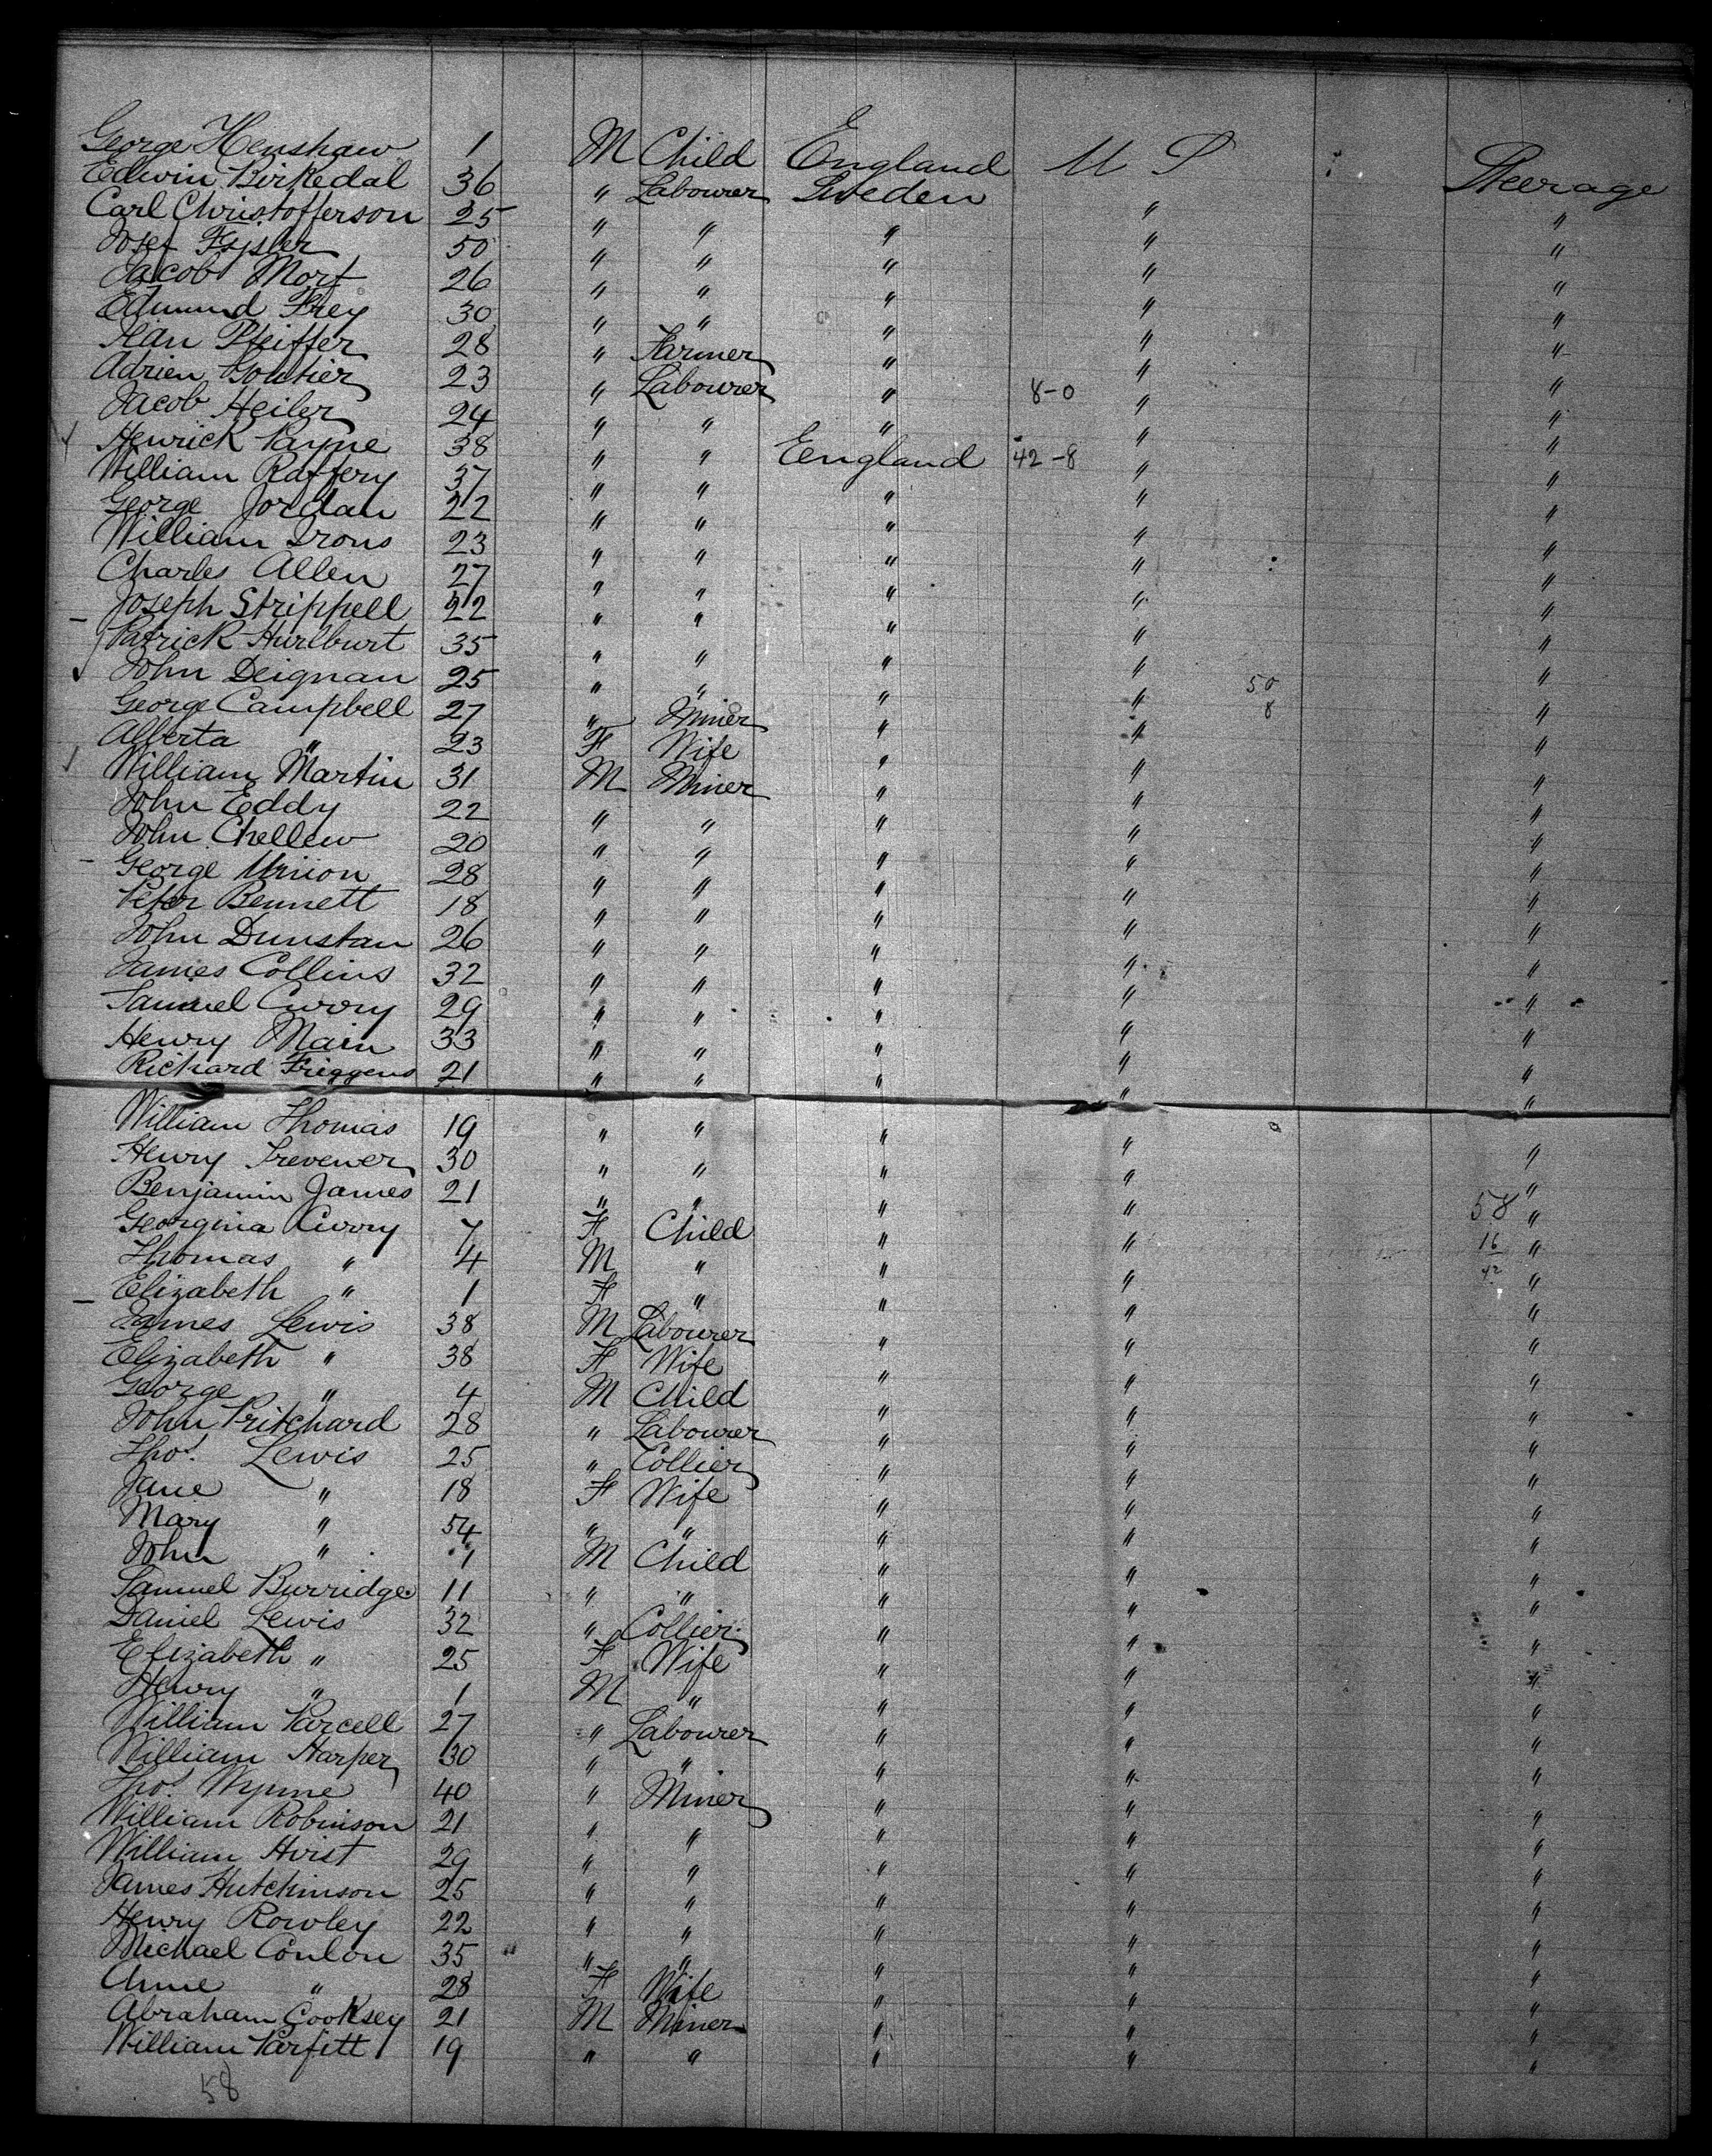 George Henshaw 1 M Child England U S Steerage
Edwin Birkedal 36 " Labourer Sweden " "
Carl Christofferson 25 " " " " "
Josef 50 " " " " "
Jacob Mort 26 " " " " "
Edmund Frey 30 " " " " "
Pfeiffer 28 " Farmer " " "
Adrien 23 " Labourer " 8-0 " "
Jacob Heiler 24 " " " " "
Henrick Payne 38 " " England 42-8 " "
William Raffery 37 " " " " "
George Jordan 22 " " " " "
William Irons 23 " " " " "
Charles Allen 27 " " " " "
Joseph Strippell 22 " " " " "
Patrick Hurlburt 35 " " " " "
John Deignan 25 " " " " 50 "
George Campbell 27 " Miner " " 8 "
Alberta " 23 F Wife " " "
William Martin 31 M Miner " " "
John Eddy 22 " " " " "
John Chellew 20 " " " " "
George Union 28 " " " " "
Peter Bennett 18 " " " " "
John Dunstan 26 " " " " "
James Collins 32 " " " " "
Samuel Curry 29 " " " " "
Henry Main 33 " " " " "
Richard Friggens 21 " " " " "
William Thomas 19 " " " " "
Henry Trevener 30 " " " " "
Benjamin James 21 " " " " 58 "
Georgina Curry 7 F Child " " 16 "
Thomas " 4 M " " " 42 "
Elizabeth " 1 F " " " "
James Lewis 38 M Labourer " " "
Elizabeth " 38 F Wife " " "
George " 4 M Child " " "
John Pritchard 28 " Labourer " " "
Thos. Lewis 25 " Collier " " "
Jane " 18 F Wife " " "
Mary " 54 " " " " "
John " 1 M Child " " "
Samuel Burridge 11 " " " " "
Daniel Lewis 32 " Collier " " "
Elizabeth " 25 F Wife " " "
Henry " 1 M " " " "
William Parcell 27 " Labourer " " "
William Harper 30 " " " " "
Thos. Wynne 40 " Miner " " "
William Robinson 21 " " " " "
William Hirst 29 " " " " "
James Hutchinson 25 " " " " "
Henry Rowley 22 " " " " "
Michael Conlon 35 " " " " "
Anne " 28 F Wife " " "
Abraham Cooksey 21 M Miner " " "
William Parfitt 19 " " " " "
58